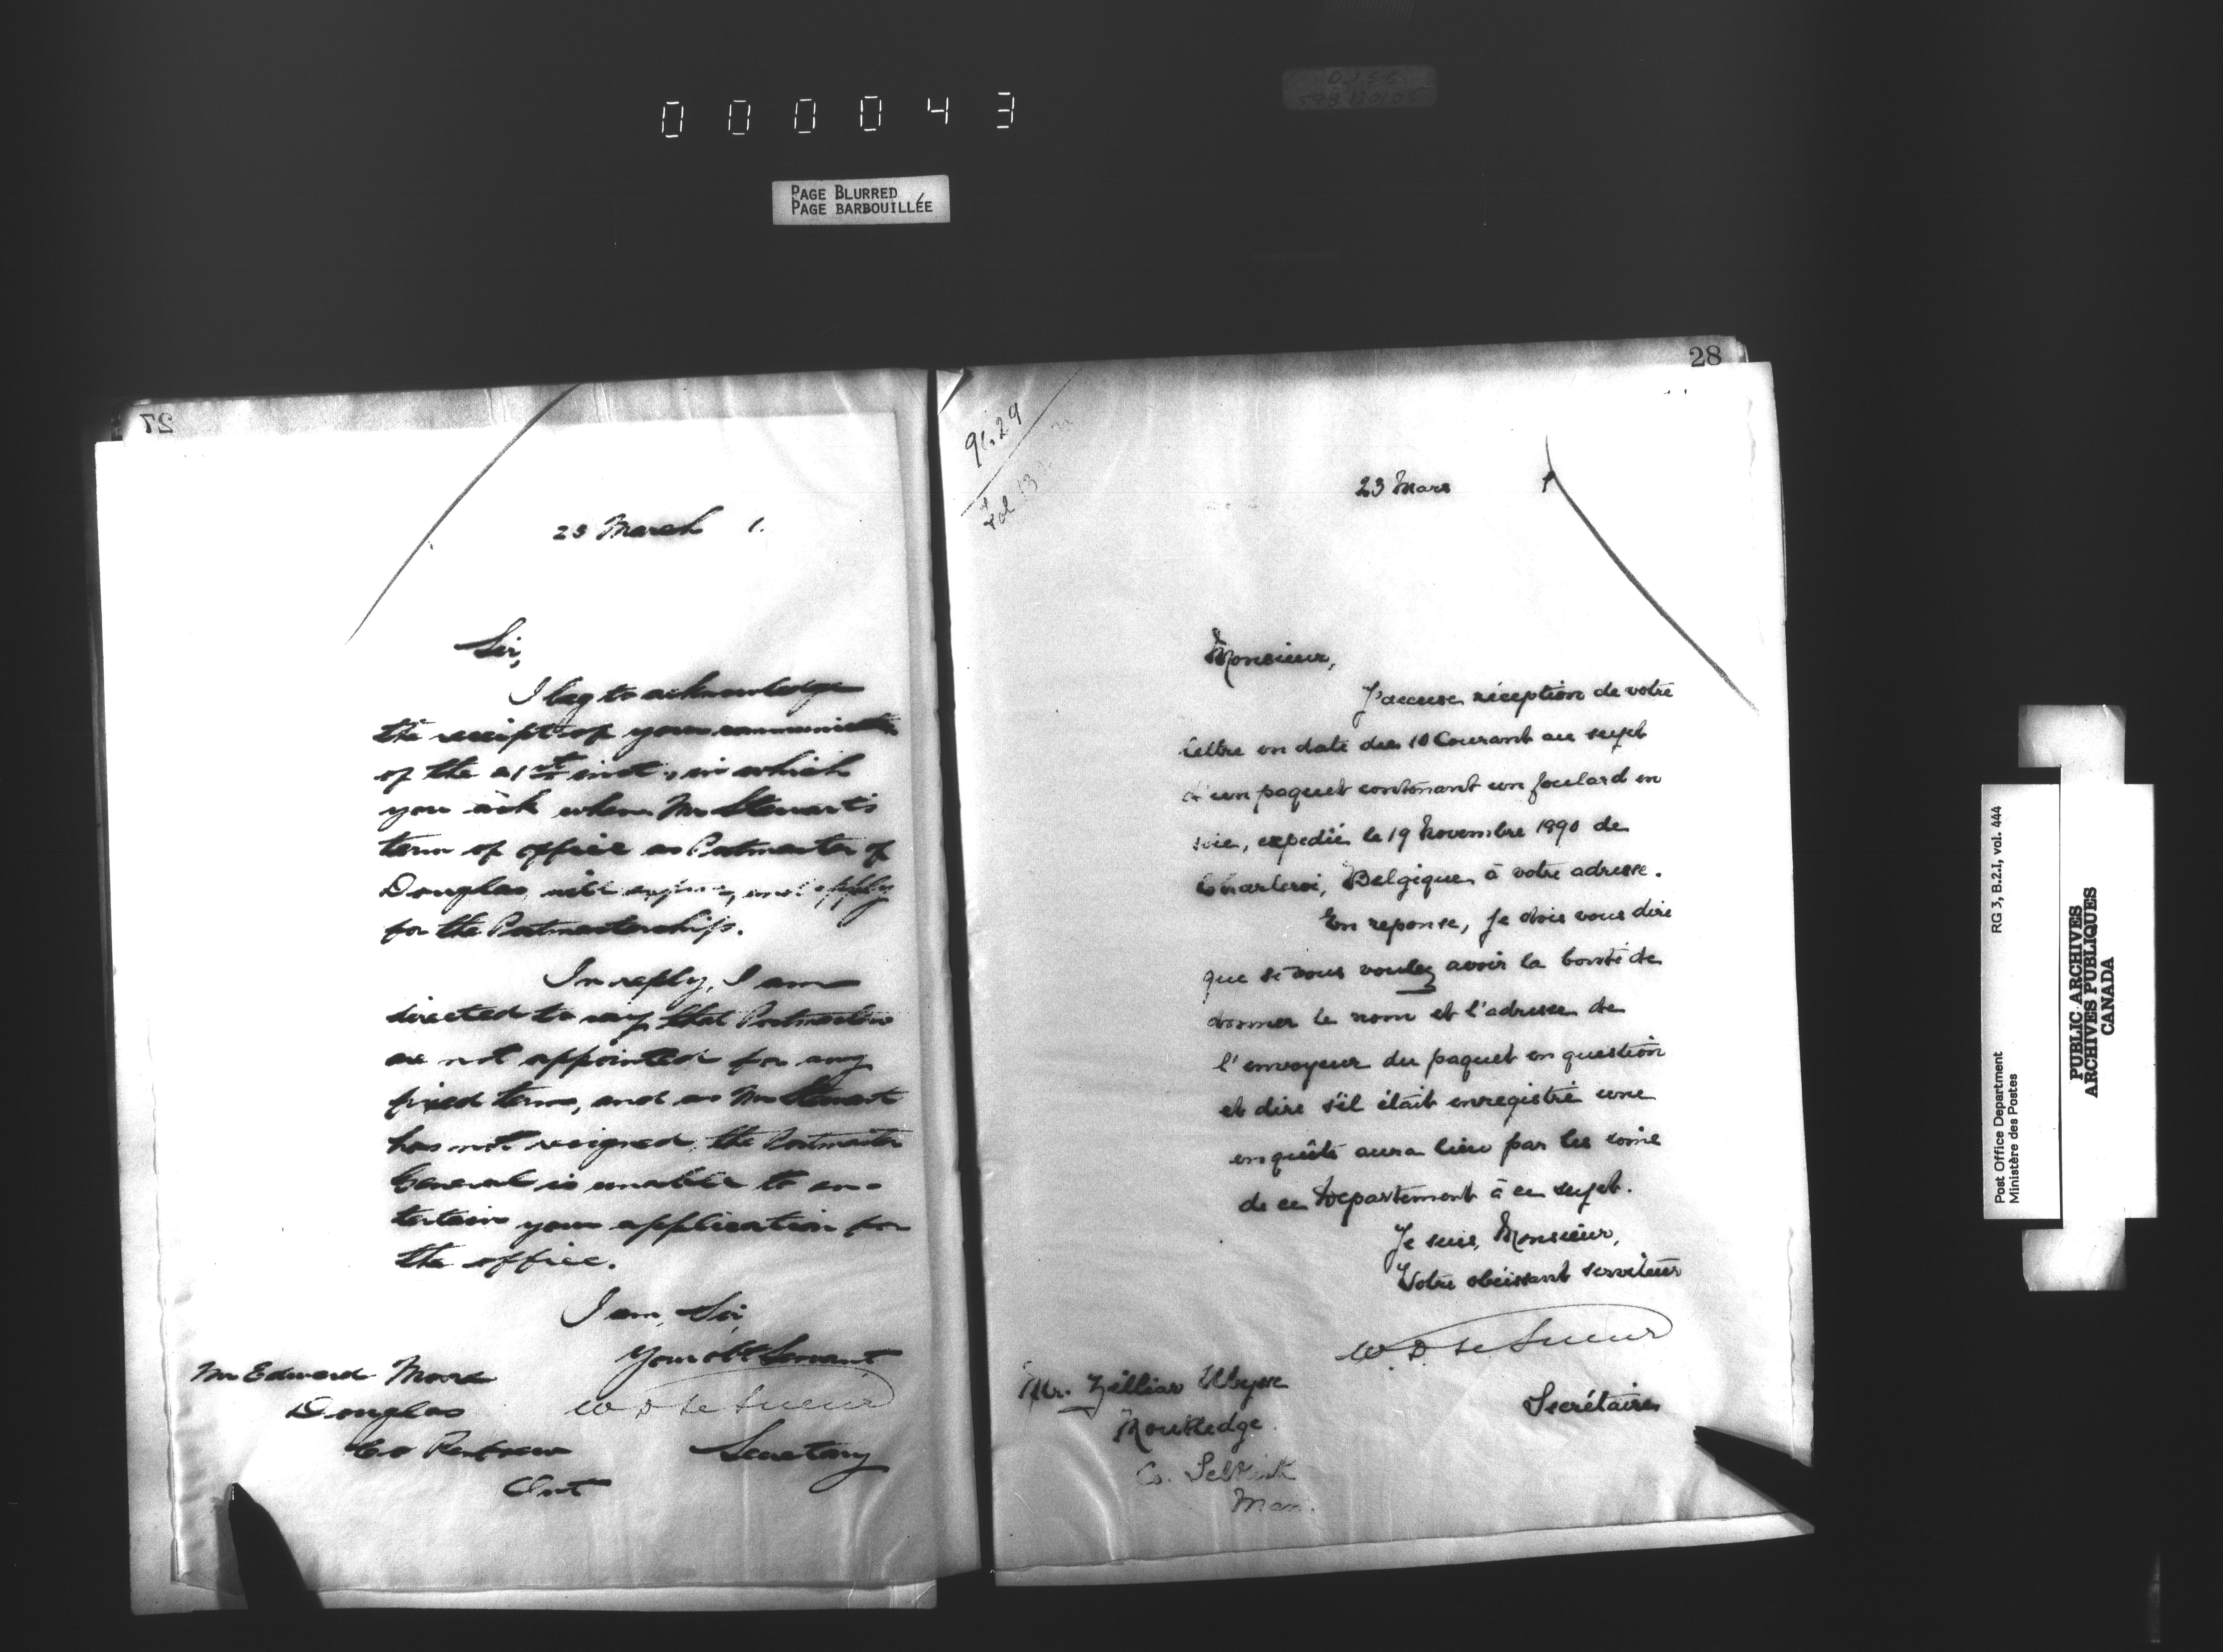 000043
PAGE BLURRED
PAGE BARBOUILLÉE
27
23 March 1.
Sir,
I beg to acknowledge
the receipt of your communicatn
of the 21st inst., in which
you ask when Mr Stewart's
term of office as Postmaster of
Douglas, will expire, and apply
for the Postmastership.
In reply, I am
directed to say that Postmasters
are not appointed for any
fixed term, and as Mr Stewart
has not resigned, the Postmaster
General is unable to en-
tertain your application for
the office.
I am, Sir,
Your obt Servant
W D Le Sueur
Secretary
Mr Edward Moore
Douglas
Co Renfrew
Ont
28
91.29
Fol 13
23 Mars 1
Monsieur,
J'accuse réception de votre
lettre en date du 10 Courant au sujet
d'un paquet contenant un foulard en
soie, expedié le 19 Novembre 1890 de
Charleroi, Belgique à votre adresse.
En reponse, je dois vous dire
que si vous voulez avoir la bonté de
donner le nom et l'adresse de
l'envoyeur du paquet en question
et dire s'il était enregistré une
enquête aura lieu par les soins
de ce Département à ce sujet.
Je suis, Monsieur,
Votre obéissant serviteur
W. D. Le Sueur
Secrétaire
Mr.
Routledge
Co. Selkirk
Man.
Post Office Department
Ministère des Postes
RG 3, B.2.I, vol. 444
PUBLIC ARCHIVES
ARCHIVES PUBLIQUES
CANADA